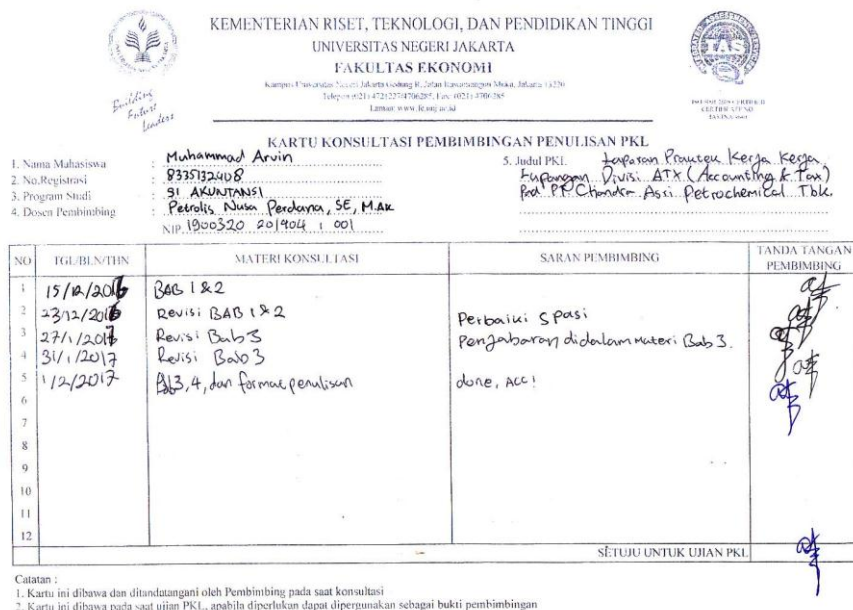 KEMENTERIAN RISET, TEKNOLOGI, DAN PENDIDIKAN TINGGI
UNIVERSITAS NEGERI JAKARTA
FAKULTAS EKONOMI
Kampus Universitas Negeri Jakarta Gedung R, Jalan Rawamangun Muka, Jakarta 13220
Telepon (021) 4721227/4706285, Fax: (021) 4706285
Laman: www.fe.unj.ac.id
Building
Future
Leaders
KARTU KONSULTASI PEMBIMBINGAN PENULISAN PKL
1. Nama Mahasiswa : Muhammad Arvin
2. No.Registrasi : 8335132408
3. Program Studi : S1 AKUNTANSI
4. Dosen Pembimbing : Petrolis Nusa Perdana, SE, M.AK
NIP. 1900320 201404 1 001
5. Judul PKL Laporan Kerja Kerja
Lapangan Divisi ATX (Accounting & Tax)
Pad PT Chandra Asri Petrochemical Tbk.
NO TGL/BLN/THN MATERI KONSULTASI SARAN PEMBIMBING TANDA TANGAN PEMBIMBING
1 15/12/2016 BAB 1 & 2
2 23/12/2016 Revisi BAB 1 & 2 Perbaiki Spasi
3 27/1/2017 Revisi Bab 3 Penjabaran didalam materi Bab 3.
4 31/1/2017 Revisi Bab 3
5 1/2/2017 Bab 3, 4, dan format penulisan done, ACC!
6
7
8
9
10
11
12
SETUJU UNTUK UJIAN PKL
Catatan :
1. Kartu ini dibawa dan ditandatangani oleh Pembimbing pada saat konsultasi
2. Kartu ini dibawa pada saat ujian PKL, apabila diperlukan dapat dipergunakan sebagai bukti pembimbingan